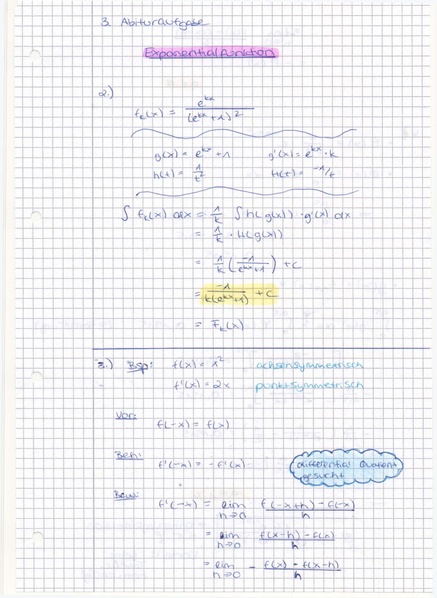 3. Abituraufgabe
Exponentialfunktion
2.)
fₖ(x) = e^(kx) / (e^(kx) + 1)²
g(x) = e^(kx) + 1    g'(x) = e^(kx) · k
h(t) = 1/t²    H(t) = -1/t
∫ fₖ(x) dx = 1/k ∫ h(g(x)) · g'(x) dx
= 1/k · H(g(x))
= 1/k (-1/(e^(kx)+1)) + c
= -1/(k(e^(kx)+1)) + c
= Fₖ(x)
3.) Bsp: f(x) = x² achsensymmetrisch
f'(x) = 2x punktsymmetrisch
Vor:
f(-x) = f(x)
Beh:
f'(-x) = -f'(x)
differential Quotient
gesucht
Bew:
f'(-x) = lim h→0 (f(-x+h) - f(-x))/h
= lim h→0 (f(x-h) - f(x))/h
= lim h→0 - (f(x) - f(x-h))/h